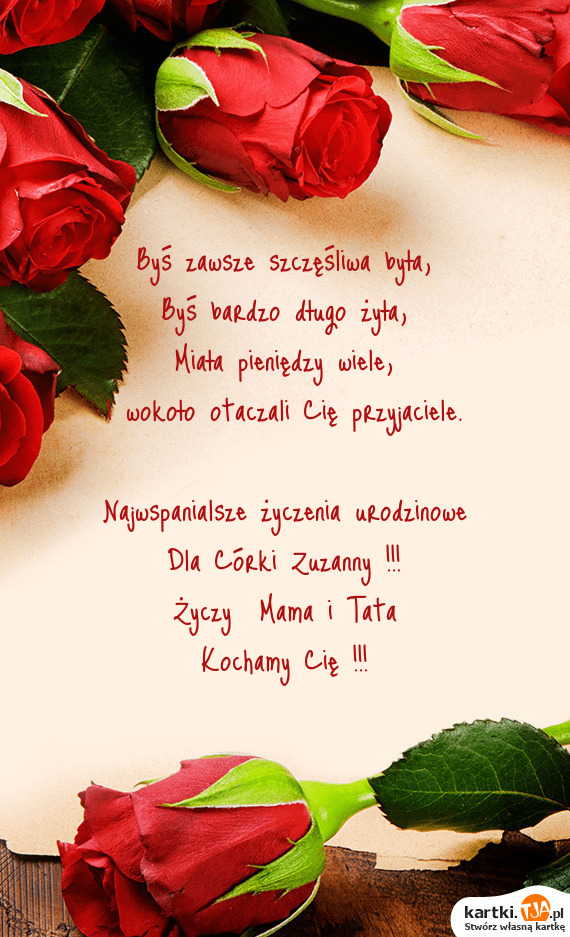 Byś zawsze szczęśliwa była,
Byś bardzo długo żyła,
Miała pieniędzy wiele,
I wokoło otaczali Cię przyjaciele.
Najwspanialsze życzenia urodzinowe
Dla Córki Zuzanny !!!
Życzy Mama i Tata
Kochamy Cię !!!
kartki.TJA.pl
Stwórz własną kartkę